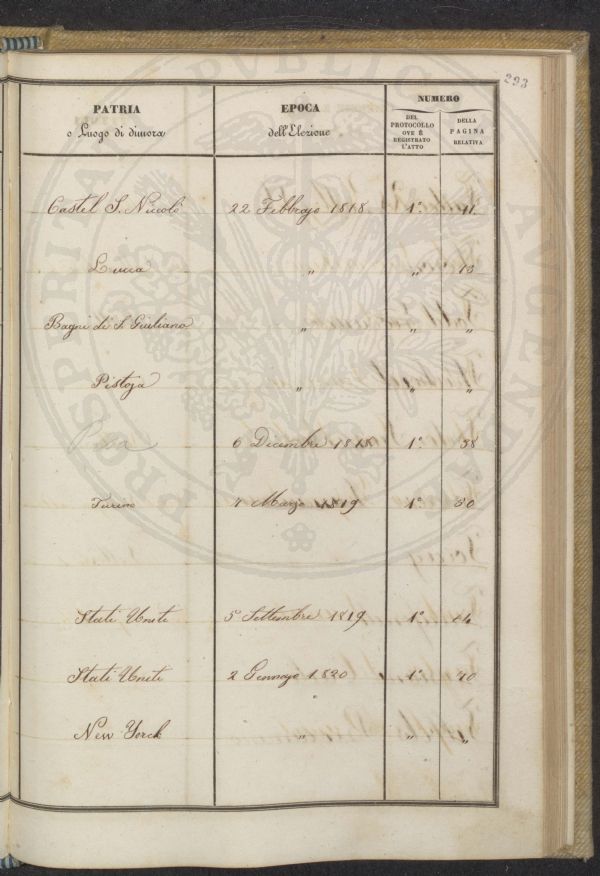 293
PATRIA
o Luogo di dimora
EPOCA
dell'Elezione
NUMERO
DEL
PROTOCOLLO
OVE È
REGISTRATO
L'ATTO
DELLA
PAGINA
RELATIVA
Castel S. Niccolò 22 Febbrajo 1818 1° 11
Lucca " " 13
Bagni di S. Giuliano " " "
Pistoja " " "
6 Dicembre 1818 1° 38
Torino 7 Marzo 1819 1° 50
Stati Uniti 5 Settembre 1819 1° 64
Stati Uniti 2 Gennajo 1820 1° 70
New Yorck " " "
PROSPERITATI PUBLICAE AUGENDAE